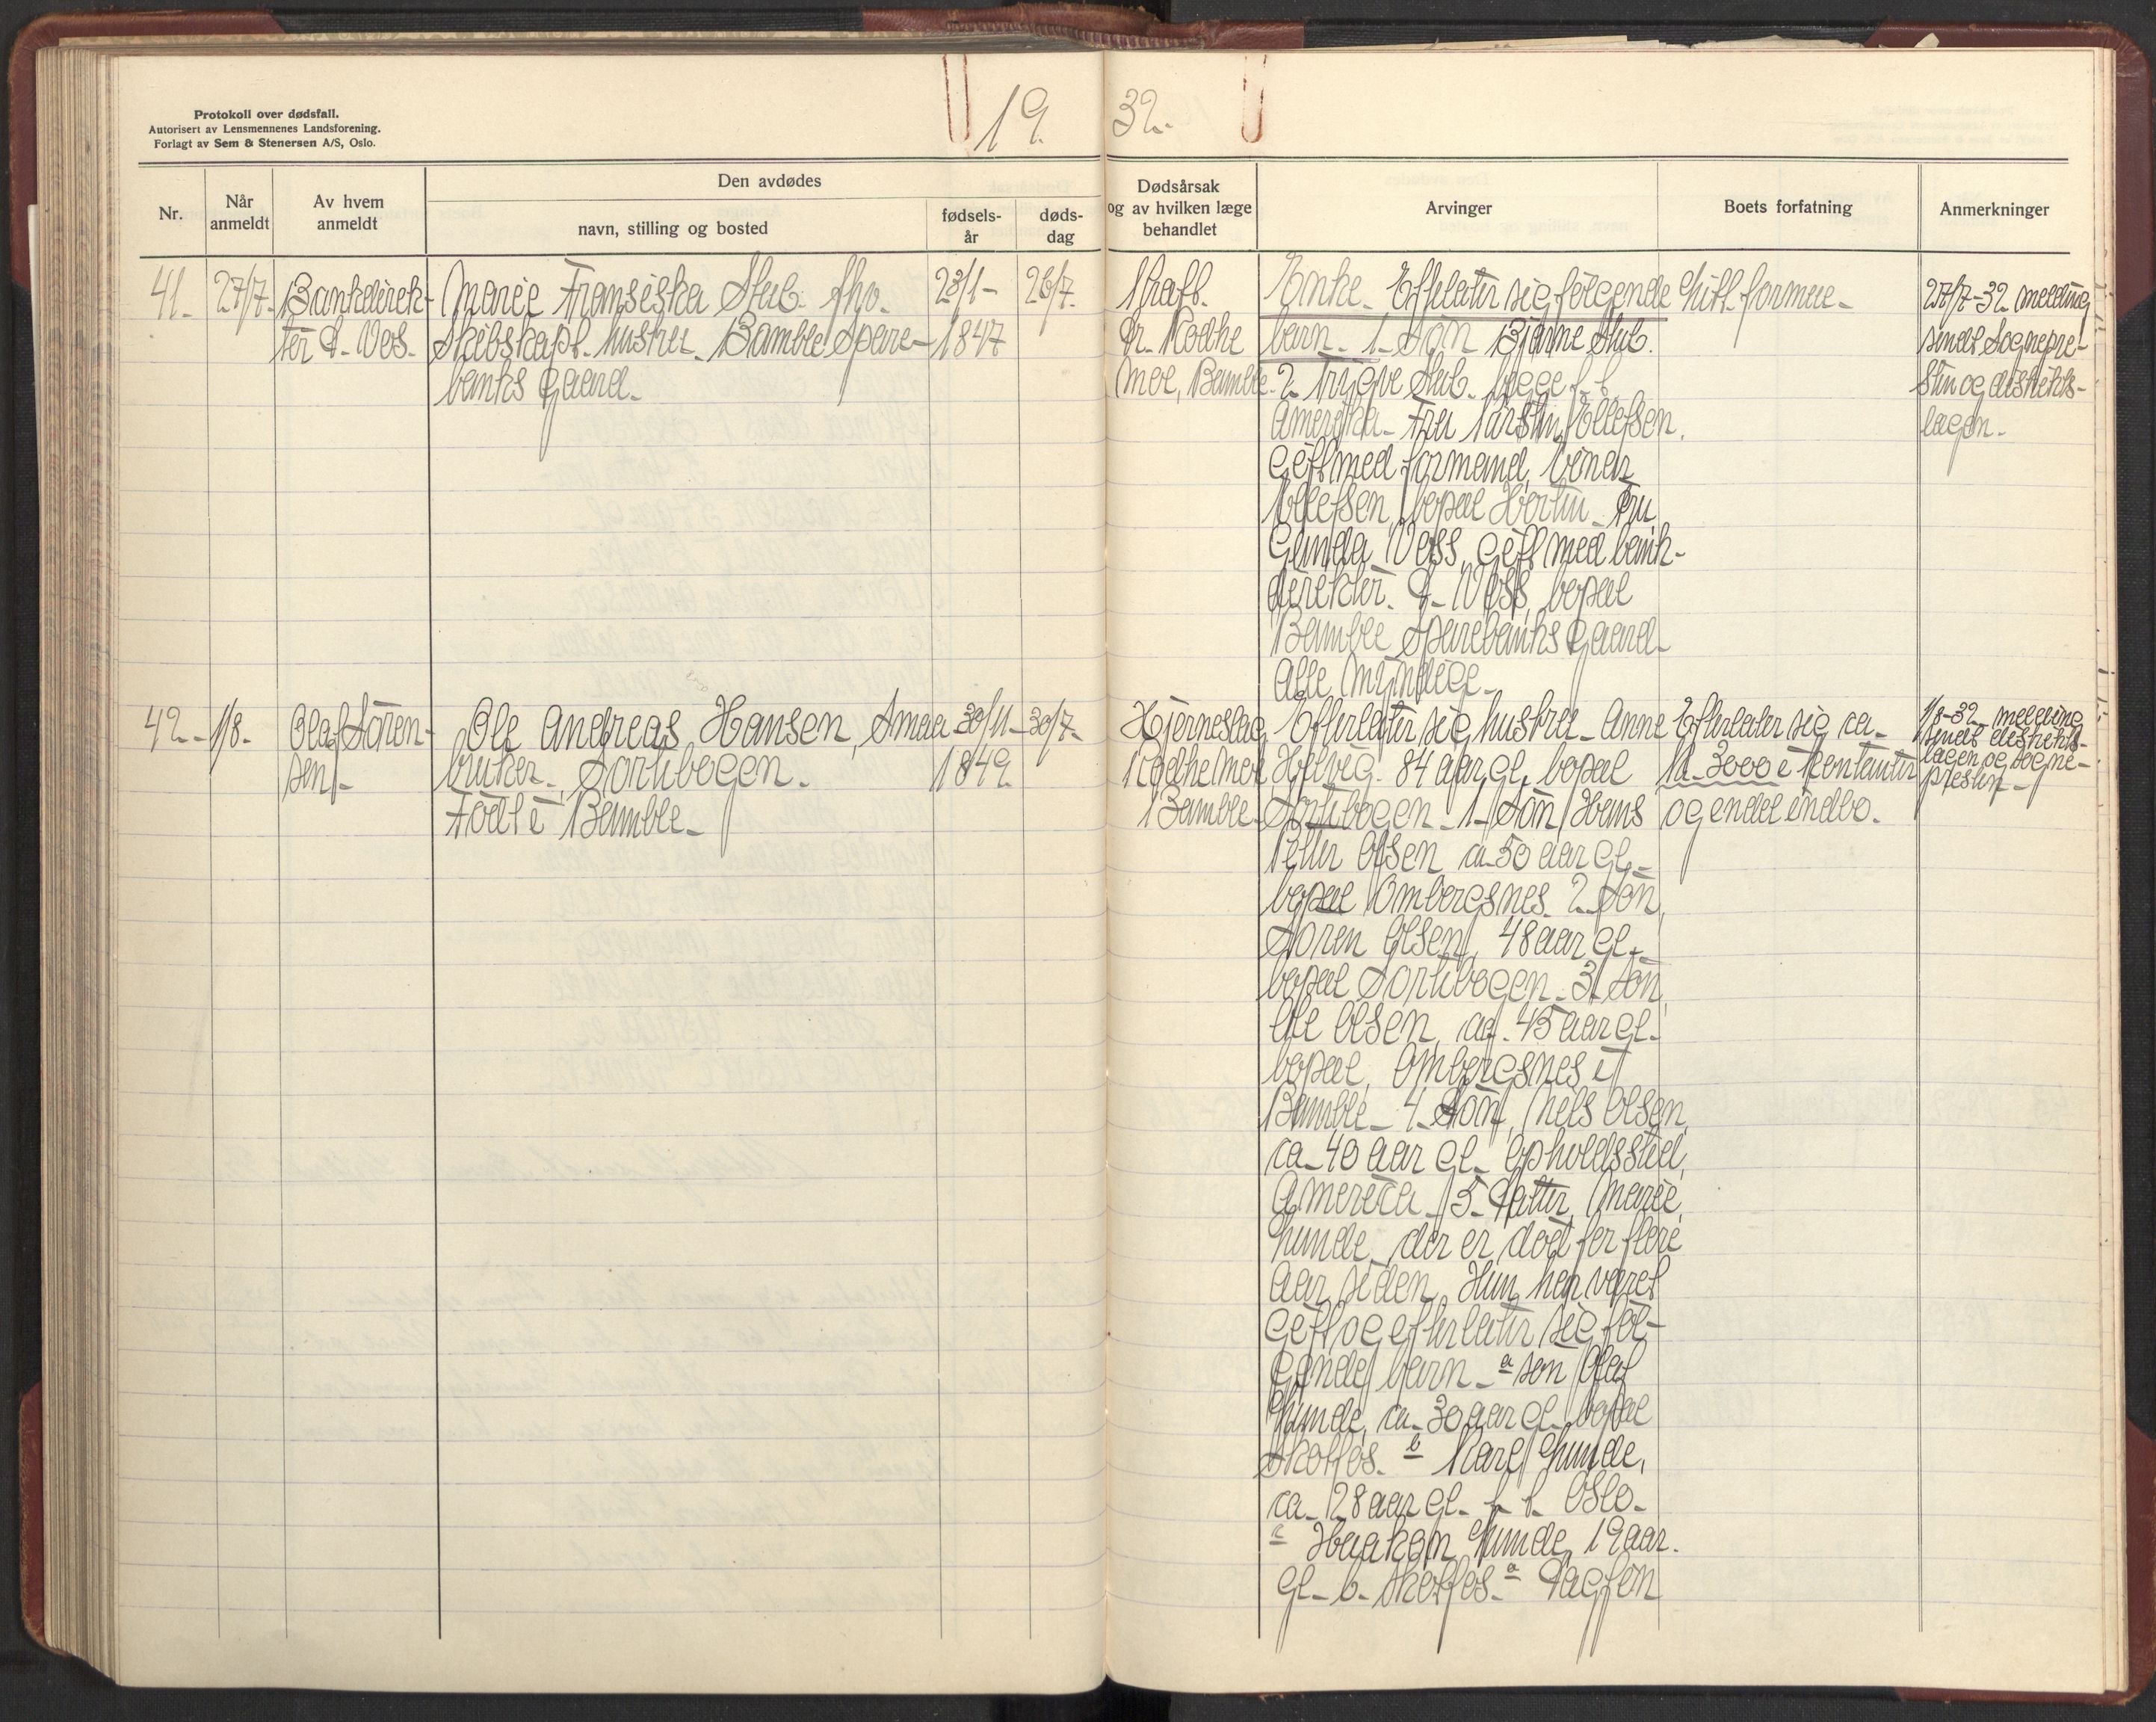 Protokoll over dødsfall.
Autorisert av Lensmennenes Landsforening.
Forlagt av Sem & Stenersen A/S, Oslo.
19 32.
Nr.
Når anmeldt
Av hvem anmeldt
Den avdødes
navn, stilling og bosted
fødsels-år
døds-dag
Dødsårsak og av hvilken læge behandlet
Arvinger
Boets forfatning
Anmerkninger
41. 27/7. Bankdirek-
tør Vos.
Marie Fransiska Stub. fhv.
Skibskapt. hustru. Bamble Spare-
banks gaard.
23/1-
1847
26/7.
Kraft.
Dr. Rodhe
Moe, Bamble.
Enke. Efterlater sig følgende
barn. 1. Søn Bjarne Stub.
2. Trygve Stub. begge
Amerika. Fru Kirstin Tollefsen,
gift med formand
Tollefsen, bopæl Fru
Gunda Voss, gift med bank-
direktør. Voss, bopæl
Bamble Sparebanks gaard.
Alle myndige.
Intet formue.
27/7-32 melding
sendt sognepre-
sten og distrikts-
lægen.
42. 1/8. Olaf Søren-
sen.
Ole Andreas Hansen, Smaa-
bruker. Sortebogen.
Født i Bamble.
30/11-
1849.
30/7.
Hjerneslag
Rodhe Moe
Bamble.
Efterlater sig hustru. Anne
Helvig. 84 aar gl. bopæl
Sortebogen. 1. Søn Hans
Petter Olsen ca. 50 aar gl.
bopæl Ombergsnes. 2. Søn,
Søren Olsen, 48 aar gl.
bopæl Sortebogen. 3. Søn
Ole Olsen, ca. 45 aar gl.
bopæl, Ombergsnes i
Bamble. 4. Søn, Nels Olsen,
ca. 40 aar gl. opholdssted,
America. 5. Datter, Marie,
der er død for flere
aar siden. Hun har været
gift og efterlater sig føl-
gende barn. a søn Olaf
ca. 30 aar gl. bopæl
Skotfos. b Karl
ca. 28 aar gl. Oslo.
c Haakon 19 aar.
gl. b. Skotfos. Dagfin
Efterlater sig ca.
kr. 3000 i kontanter
og endel indbo.
1/8-32 melding
sendt distrikts-
lægen og sogne-
presten.